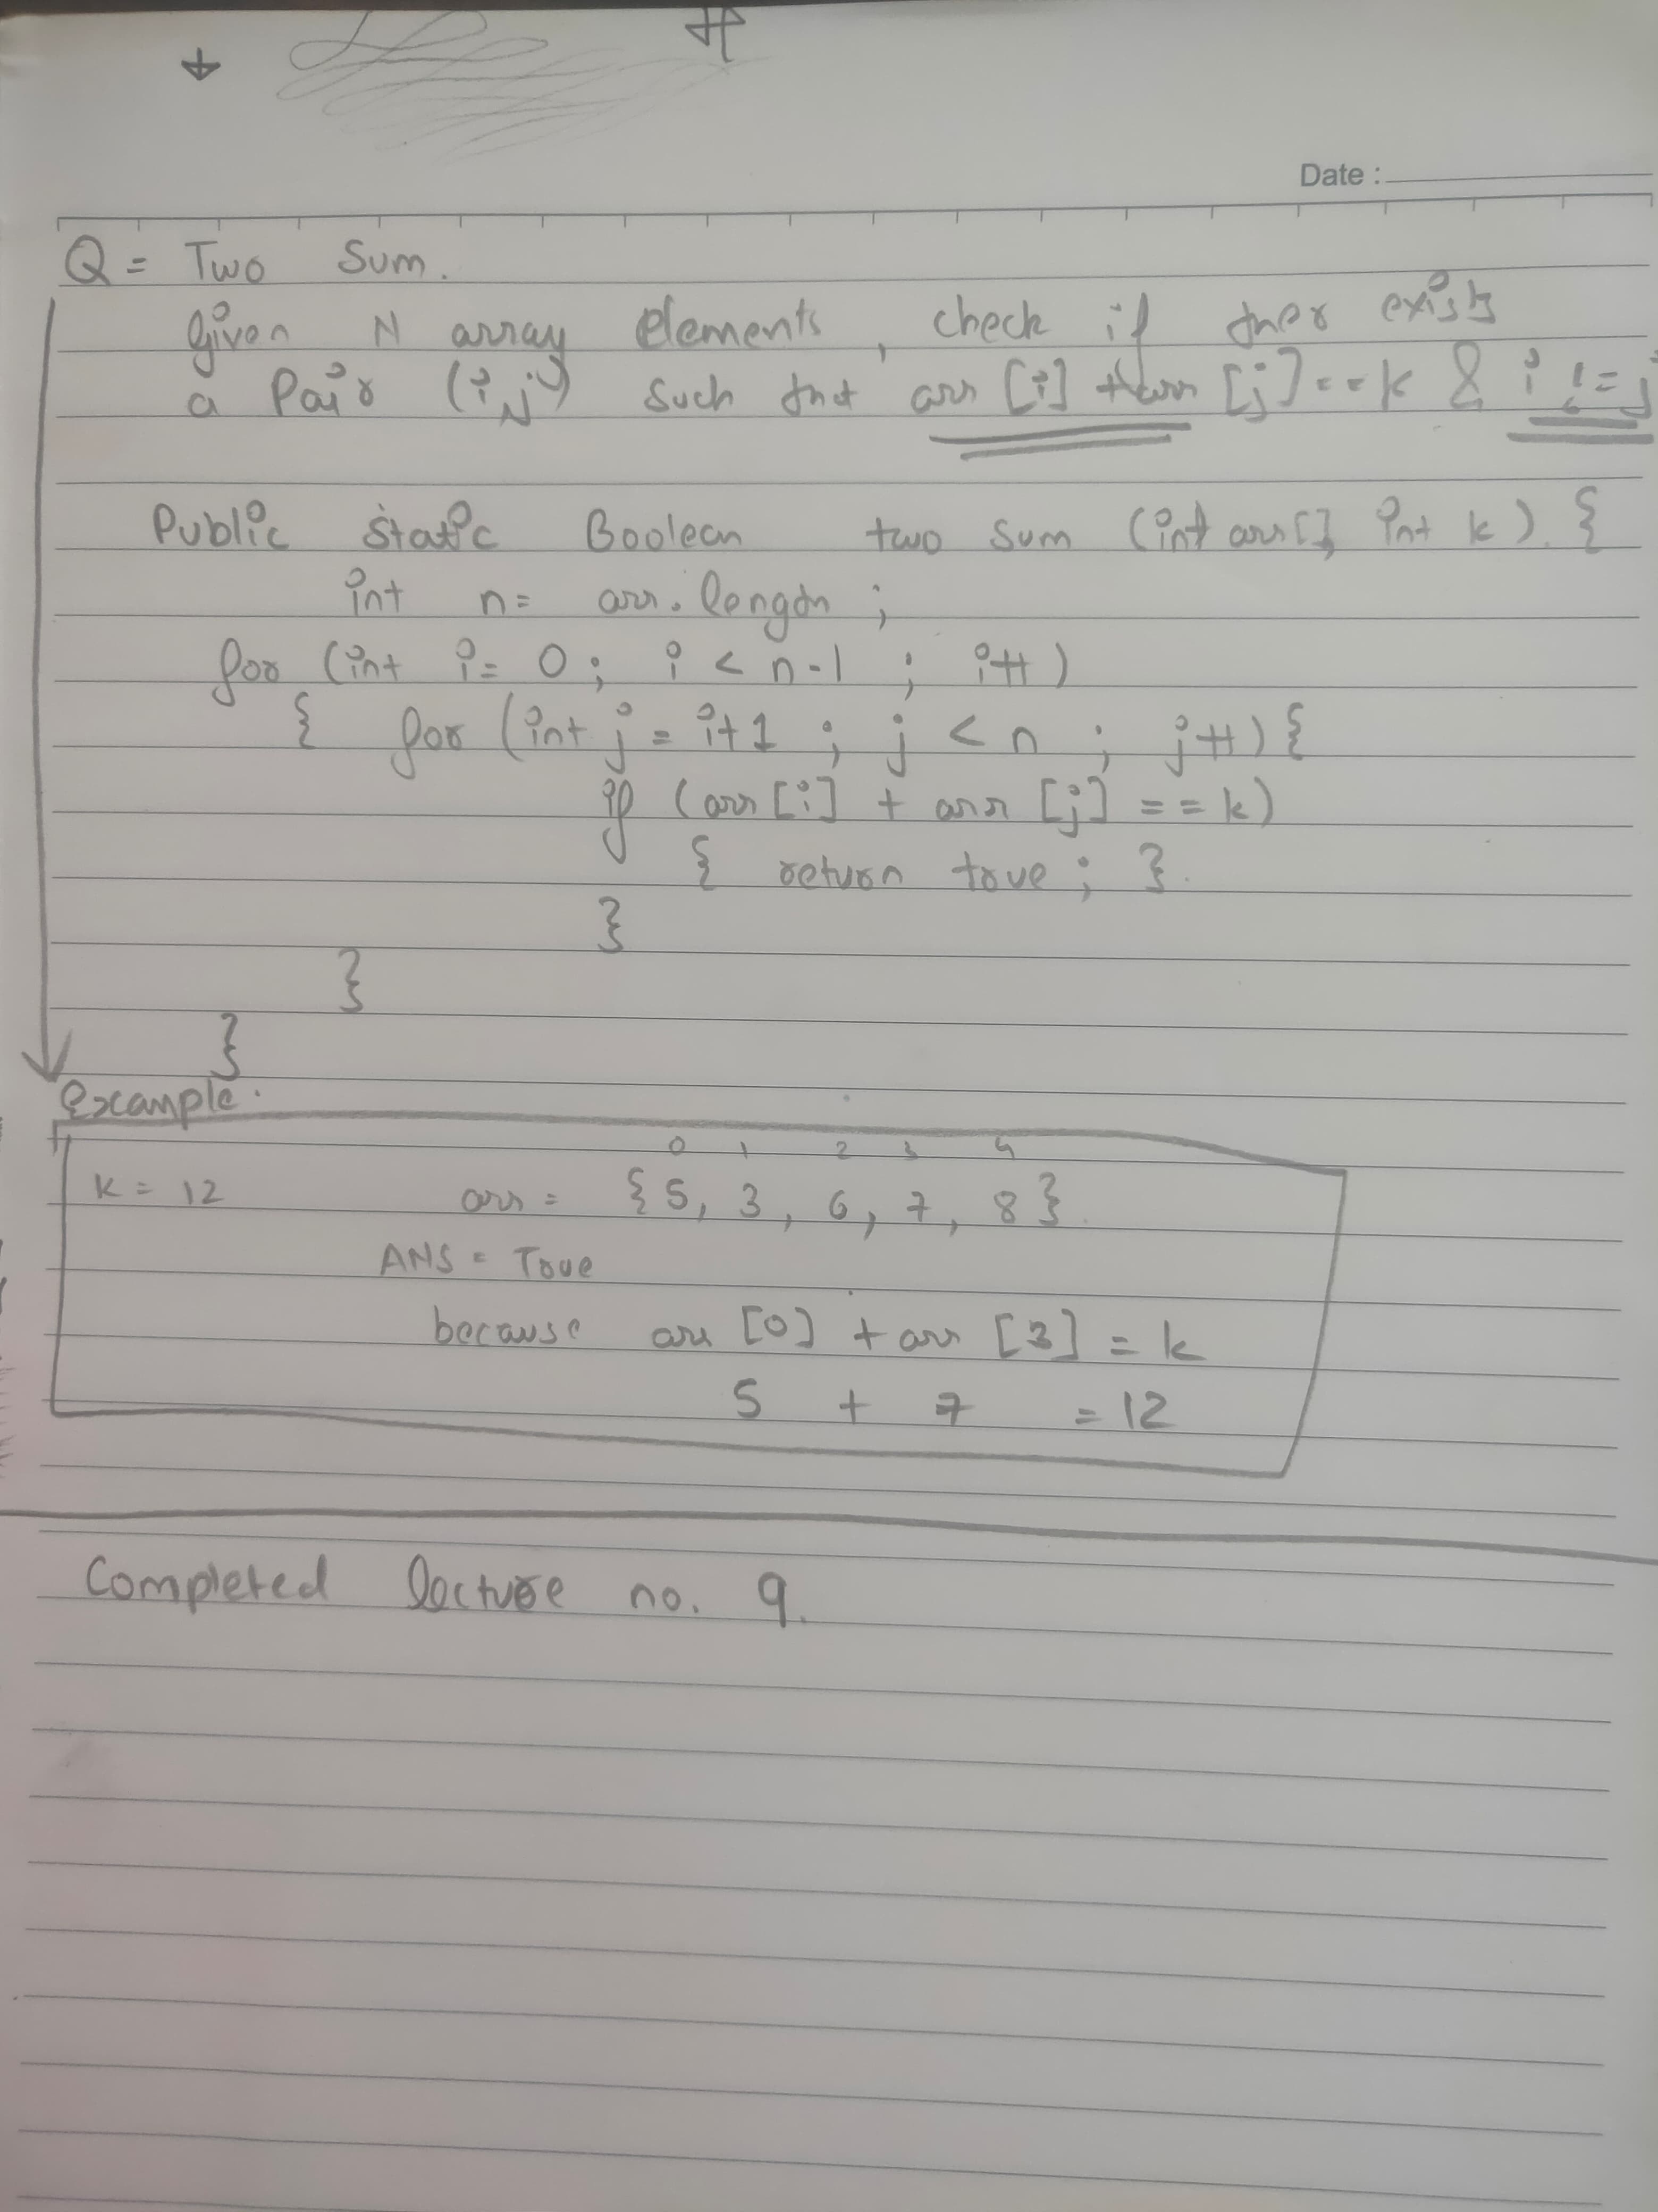 Date :
Q = Two Sum.
given N array elements, check if ther exists
a Pair (i, j) such tht arr [i] + arr [j] == k & i != j
Public static Boolean two sum (int arr[], int k). {
int n = arr. length ;
for (int i = 0 ; i < n-1 ; i++)
{ for (int j = i+1 ; j < n ; j++) {
if (arr [i] + arr [j] == k)
{ return true ; }.
}
}
}
Example.
0 1 2 3 4
k = 12 arr = {5, 3, 6, 7, 8}.
ANS = True
because arr [0] + arr [3] = k
5 + 7 = 12
Completed lecture no. 9.